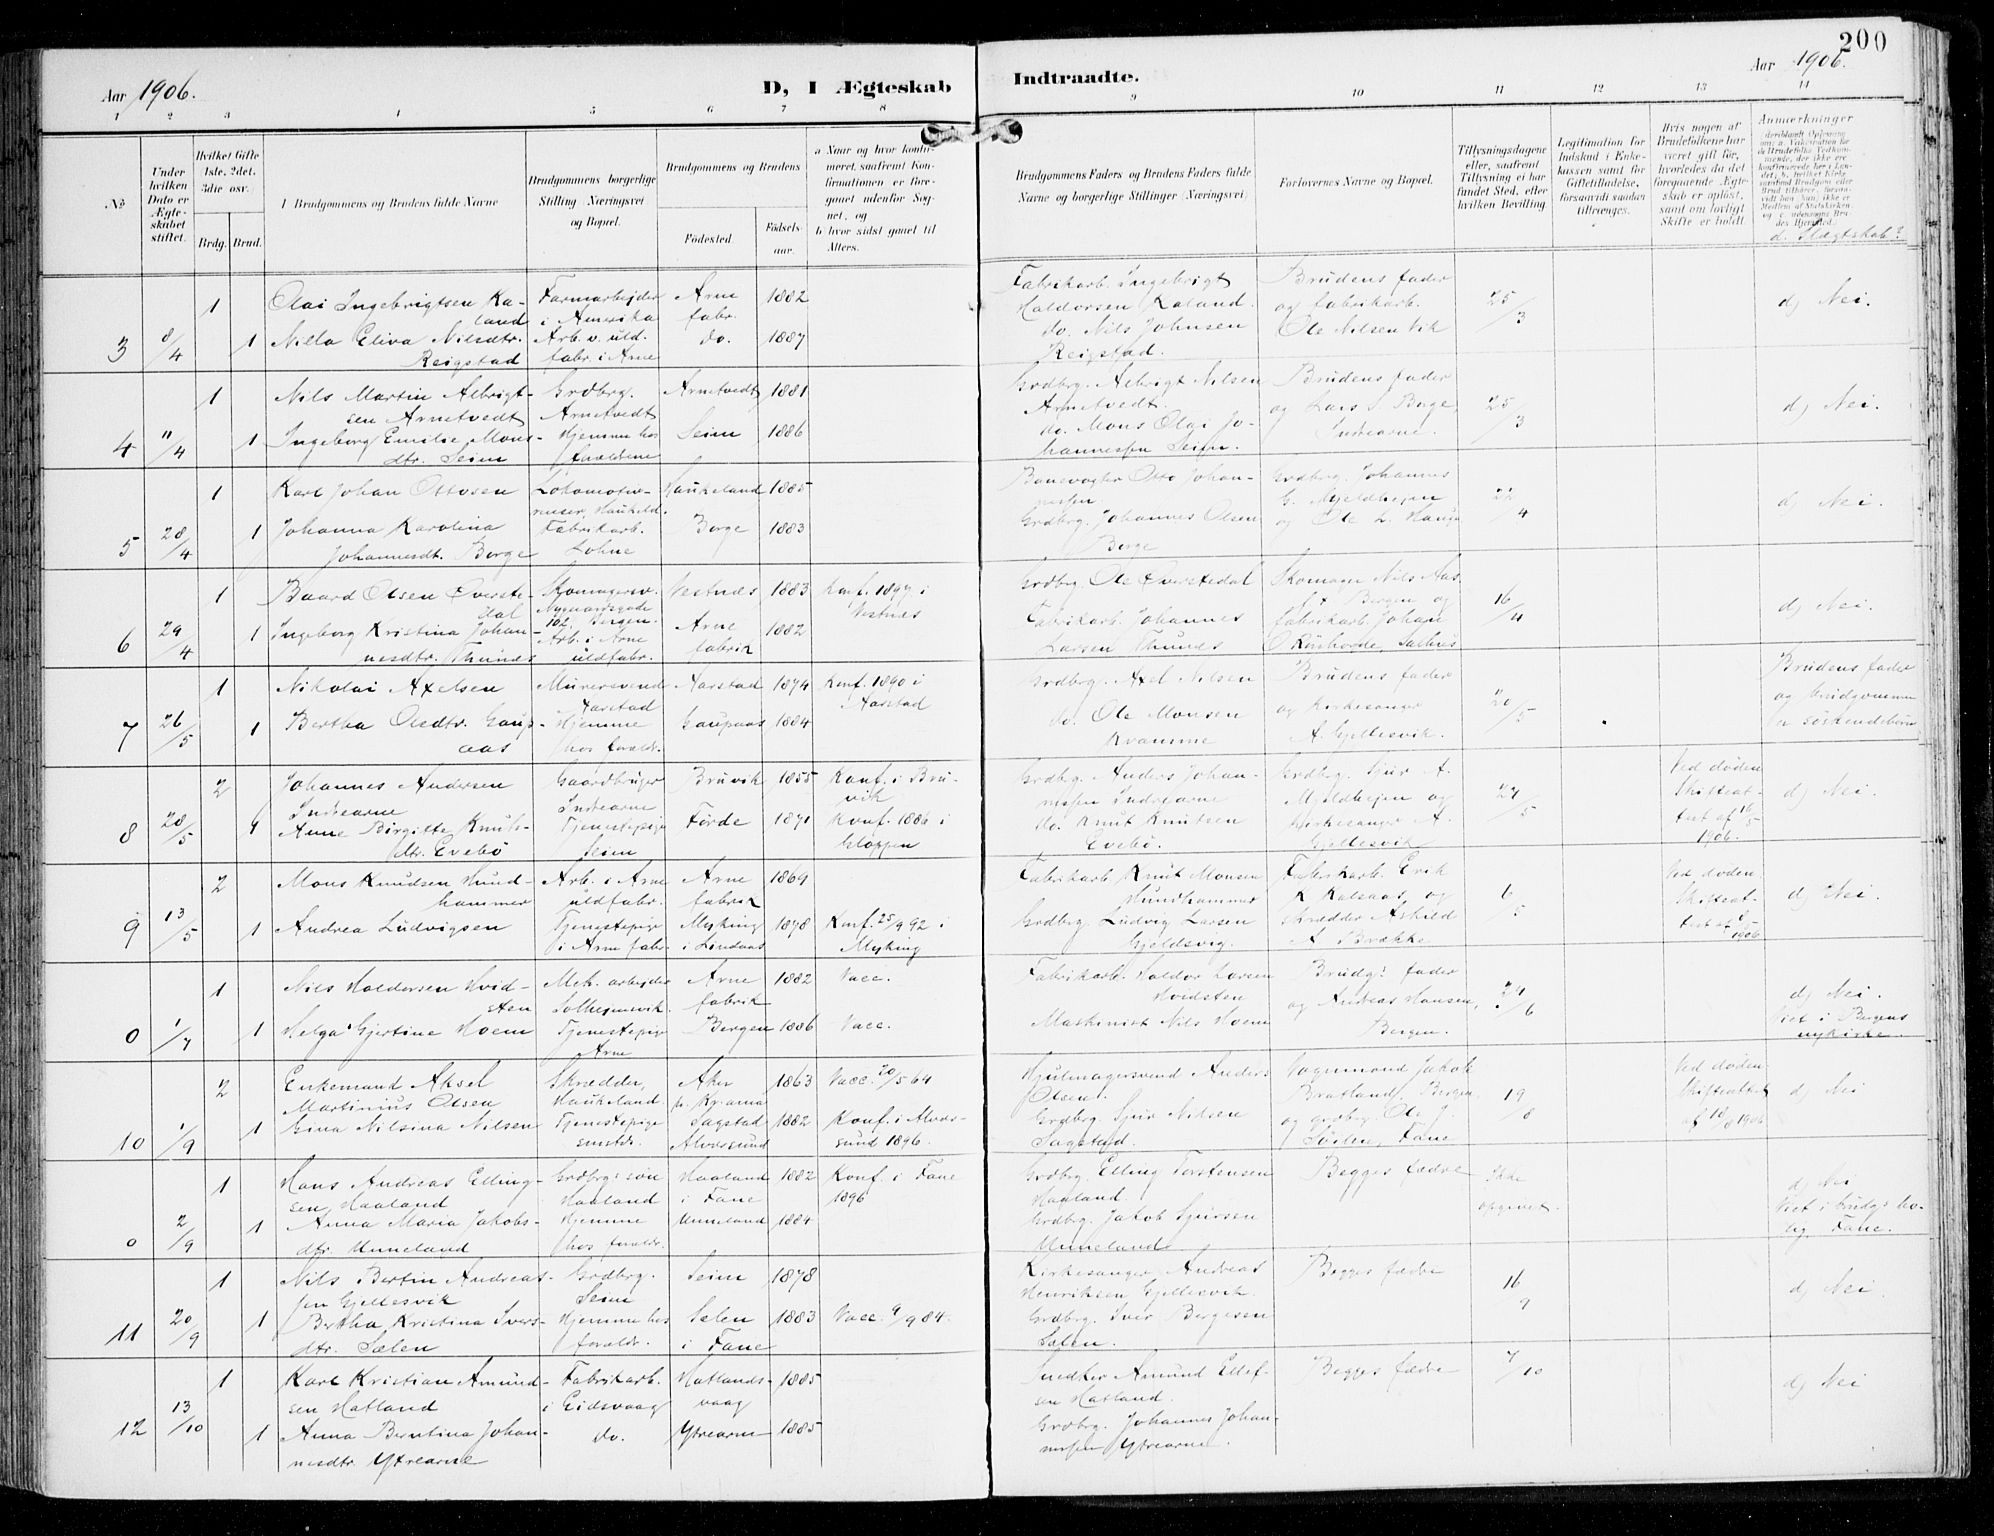 200
Aar 1906.
D, I Ægteskab
Indtraadte.
Aar 1906.
1 2 3 4 5 6 7 8 9 10 11 12 13 14
№
Under hvilken Dato er Ægteskabet stiftet.
Hvilket Gifte 1ste, 2det, 3die osv.
Brdg. Brud.
Brudgommens og Brudens fulde Navne
Brudgommens borgerlige Stilling (Næringsvei) og Bopæl.
Brudgommens og Brudens
Fødested
Fødselsaar.
a. Naar og hvor konfirmeret, saafremt Konfirmationen er foregaaet udenfor Sognet, og
b. hvor sidst gaaet til Alters.
Brudgommens Faders og Brudens Faders fulde Navne og borgerlige Stillinger (Næringsvei)
Forlovernes Navne og Bopæl.
Tillysningsdagene eller, saafremt Tillysning ei har fundet Sted, efter hvilken Bevilling.
Legitimation for Indskud i Enkekassen samt for Giftetilladelse, forsaavidt saadan tiltrænges.
Hvis nogen af Brudefolkene har været gift før, hvorledes da det foregaaende Ægteskab er opløst, samt om lovligt Skifte er holdt.
Anmærkninger
d. Slægtskab?
3 8/4 1 Olai Ingebrigtsen Kaland Farmarbejder i Amerika Arne fabr. 1882
Fabrikarb. Ingebrigt Haldorsen Kaland. Brudens fader og fabrikarb. Ole Nilsen Vik 25/3 d) Nei.
1 Nilla Eliva Nilsdtr. Reigstad Arb. v. uldfabr. i Arne do. 1887
do. Nils Johnsen Reigstad.
4 11/4 1 Nils Martin Albrigtsen Arnetvedt Grdbrg. Arnetvedt Arnetvedt 1881
Grdbrg. Albrigt Nilsen Arnetvedt. Brudens fader og Lars Borge Indrearne. 25/3 d) Nei.
1 Ingeborg Emilie Monsdtr. Seim Hjemme hos forældrene Seim 1886
do. Mons Olai Johannessen Seim.
5 28/4 1 Karl Johan Ottosen Haukeland 1885
Banevogter Otto Johannessen Grdbrg. Johannes G. Mjeldhejen og Ole L. Hauge 22/4 d) Nei.
1 Johanna Karolina Johannesdt. Borge Fabrikarb. Lohne Borge 1883
Grdbrg. Johannes Olsen Borge
6 29/4 1 Baard Olsen Øverstedal Skomagersv. Nygaardsgade 102, Bergen. Vestnæs 1883 Konf. 1897 i Vestnæs
Grdbrg. Ole Øverstedal Skomager Nils Aas Bergen og fabrikarb. Johan 16/4 d) Nei.
1 Ingeborg Kristina Johannesdtr. Thunæs Arb. i Arne uldfabr. Arne fabrik 1882
Fabrikarb. Johannes Larsen Thunæs
7 26/5 1 Nikolai Axelsen Murersvend Aarstad Aarstad 1874 Konf. 1890 i Aarstad
Grdbrg. Axel Nilsen Brudens fader og kirkesanger A. Gjellesvik. 20/5 Brudens fader og brudgommen er søskendebørn
1 Bertha Olsdtr. Gaupaas Hjemme hos forældr. Gaupaas 1884
do. Ole Monsen Kvamme
8 28/5 2 Johannes Andersen Indrearne Gaardbruger Indrearne Bruvik 1855 Konf. i Bruvik
Grdbrg. Anders Johannessen Indrearne Grdbrg. Sjur A. Mjeldhejen og kirkesanger A. Gjellesvik 27/5 Ved døden Skifteattest af 16/5 1906. d) Nei.
1 Anne Birgitte Knutsdtr. Evebø Tjenestepige Seim Førde 1871 Konf. 1886 i Gloppen
do. Knut Knutsen Evebø.
9 13/5 2 Mons Knudsen Hundhammer Arb. i Arne uldfabr. Arne fabrik 1869
Fabrikarb. Knut Monsen Hundhammer Fabrikarb. Erik K Kalsaas og skrædder Askild A Brække 6/5 Ved døden Skifteattest af 1906 d) Nei.
1 Andrea Ludvigsen Tjenestepige i Arne fabr. Myking i Lindaas 1878 Konf. 25/9 92 i Myking
Grdbrg. Ludvig Larsen Gjeldsvig.
0 1/7 1 Nils Haldorsen Hvidsten Mek. arbejder Solhejmsvik. Arne fabrik 1882 Vacc.
Fabrikarb. Haldor Larsen Hvidsten Brudgs fader og Andreas Hansen, Bergen. 24/6 d) Nei. Viet i Bergens nykirke.
1 Helga Gjertine Hoem Tjenestepige Arne Bergen 1886 Vacc.
Maskinist Nils Hoem
10 1/9 2 Enkemand Aksel Martinius Olsen Skrædder, Haukeland. Aker p. Kr.ania 1863 Vacc. 20/5 64
Hjulmagersvend Anders Olsen. Vognmand Jakob Bratland, Bergen og grdbrg. Ole J. Fane 19/8 Ved døden Skifteattest af 18/8 1906 d) Nei
1 Gina Nilsina Nilsen Tjenestepige smstds. Sagstad Alversund 1882 Konf. i Alversund 1896.
Grdbrg. Sjur Nilsen Sagstad
0 2/9 1 Hans Andreas Ellingsen Haaland Grdbrgs søn Haaland Haaland i Fane 1882 Konf. i Fane 1896
Grdbrg. Elling Torstensen Haaland. Begges fædre Ikke opgivet. d) Nei Viet i brudgs bolig, Fane.
1 Anna Maria Jakobsdtr. Unneland Hjemme hos forældr. Unneland 1884
Grdbrg. Jakob Sjursen Unneland
11 20/9 1 Nils Bertin Andreassen Gjellesvik Grdbrg. Seim Seim 1878
Kirkesanger Andreas Henriksen Gjellesvik. Begges fædre 16/9 d) Nei.
1 Bertha Kristina Iversdtr. Sælen Hjemme hos forældr. Sælen i Fane 1883 Vacc. 9/9 84.
Grdbrg. Iver Børgesen Sælen.
12 13/10 1 Karl Kristian Amundsen Hatland Fabrikarb. i Eidsvaag Hatlandsvaag 1885
Snedker Amund Ellefsen Hatland. Begges fædre 7/10 d) Nei
1 Anna Berntina Johannesdtr. Ytrearne do. Ytrearne 1885
Grdbrg. Johannes Johannessen Ytrearne.